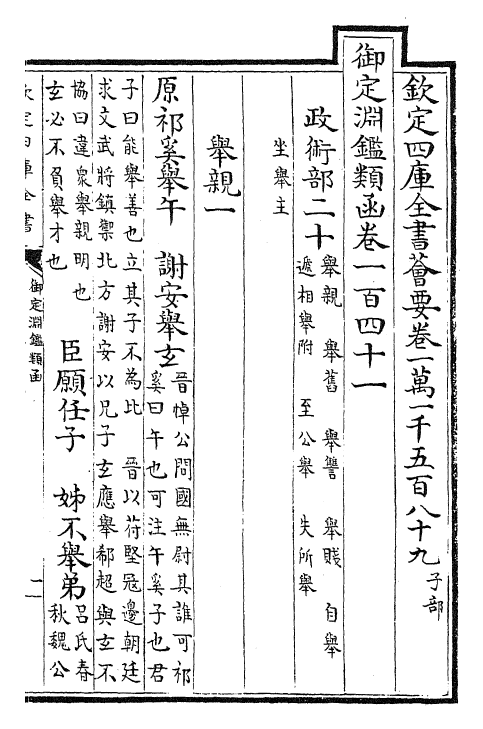 欽定四庫全書薈要卷一萬一千五百八十九 子部
御定淵鑑類函卷一百四十一
政術部二十 舉親 舉舊 舉讐 舉賤 自舉
遞相舉附 至公舉 失所舉
坐舉主
舉親一
原祁奚舉午 謝安舉玄 晉悼公問國無尉其誰可祁
奚曰午也可注午奚子也君
子曰能舉善也立其子不為比 晉以苻堅冦邊朝廷
求文武將鎮禦北方謝安以兄子玄應舉郗超與玄不
協曰違衆舉親明也
玄必不負舉才也 臣願任子 姊不舉弟 吕氏春
秋魏公
欽定四庫全書
御定淵鑑類函